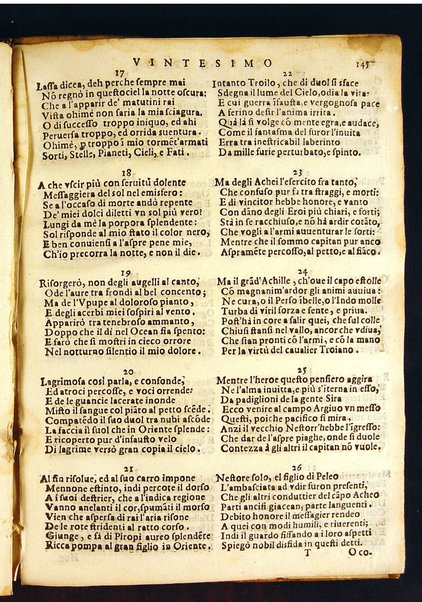 VINTESIMO 145
17
Lassa dicea, deh perche sempre mai
Nõ regnò in questo ciel la notte oscura:
Che a l'apparir de' matutini rai
Vista ohimè non saria la mia sciagura.
O di successo troppo iniquo, ed ahi
Peruersa troppo, ed orrida suentura.
Ohimè, pꝛ troppo ì mio tormẽt'armati
Sorti, Stelle, Pianeti, Cieli, e Fati.
18
A che vscir più con feruitù dolente
Messaggiera del sol nel emisfero:
Se a l'occaso di morte andò repente
De' miei dolci diletti vn sol più vero!
Lungi da mè la porpora splendente:
Sol risponde al mio stato il color nero,
E ben conuiensi a l'aspre pene mie,
Ch'io precorra la notte, e non il die.
19
Risorgerò, non degli augelli al canto,
Ode l'aure tra frondi al bel concento;
Ma de l'Vpupe al doloroso pianto,
E degli acerbi miei sospiri al vento.
Apparirò tra tenebroso ammanto,
Doppo che il dì nel Ocean fia spento:
E farò che si mostri in cieco orrore
Nel notturno silentio il mio dolore.
20
Lagrimosa così parla, e consonde,
Ed atroci percosse, e voci orrende:
E de le guancie lacerate inonde
Misto il sangue col piãto al petto scẽde.
Compatẽdo il suo duol tra nubi ascõde
La faccia il sol che in Oriente splende:
E ricoperto pur d'infausto velo
Di lagrime versò gran copia il cielo.
21
Al fin risolue, ed al suo carro impone
Mennone estinto, indi percote il dorso
A i suoi destrier, che a l'indica regione
Vanno anelanti il cor, spumãti il morso
Vien che aspersa di rai l'aria risone
De le rote stridenti al ratto corso.
Giunge, e sà di Piropi aureo splendẽte
Ricca pompa al gran figlio in Oriente.
22
Intanto Troilo, che di duol si sface
Sdegna il lume del Cielo, odia la vita:
E cui guerra ifausta, e vergognosa pace
A ferino desir l'anima irrita.
Quà là si volge cõ mente egra, e audace,
Come il fantasma del furor l'inuita
Erra tra inestricabil laberinto
Da mille furie perturbato, e spinto.
23
Ma degli Achei l'esercito fra tanto,
Che confuso pur fà tra straggi, e morti:
E di vincitor hebbe honore, e vanto
Con dãno degli Eroi più chiari, e forti;
Stà in se racchiuso, e nõ hà ardir cotãto,
Che vogli a l'armi auuenturar le sorti:
Mentre che il sommo capitan pur anco
Aspramẽte percosso, al petto, e al fiãco.
24
Ma il grãd'Achille, ch'oue il capo estolle
Cõ magnanim'ardor gli animi auuiua:
Ne cura, o il Perso ibelle, o l'Indo molle
Turba di viril forza e sente, e priua.
Post'hà in core a salir quei, che sul colle
Chiusi stansi nel vallo, ancor che vdiua,
Che sian pronti cõ l'armi, e cõ la mano
Per la virtù del caualier Troiano.
25
Mentre l'heroe questo pensiero aggira
Ne l'alma inuitta, e più s'iterna in esso,
Da padiglioni de la gente Sira
Ecco venire al campo Argiuo vn messo
Questi, poiche pacifico si mira.
Anzi il vecchio Nestorr'hebbe l'ĩgresso:
Che dar de l'aspre piaghe, onde si duole
Contezza à gli altri il capitan nõ vuole.
26
Nestore solo, el figlio di Peleo
L'ambasciata ad vdir furon presenti,
Che gli altri conduttier del cãpo Acheo
Parti ancisi giacean, parte languenti.
Debito honore il messagier rendeo
A quei con modi humili, e riuerenti;
Indi il guardo fissando a i loro aspetti
Spiegò nobil disfida in questi detti.
T O co.